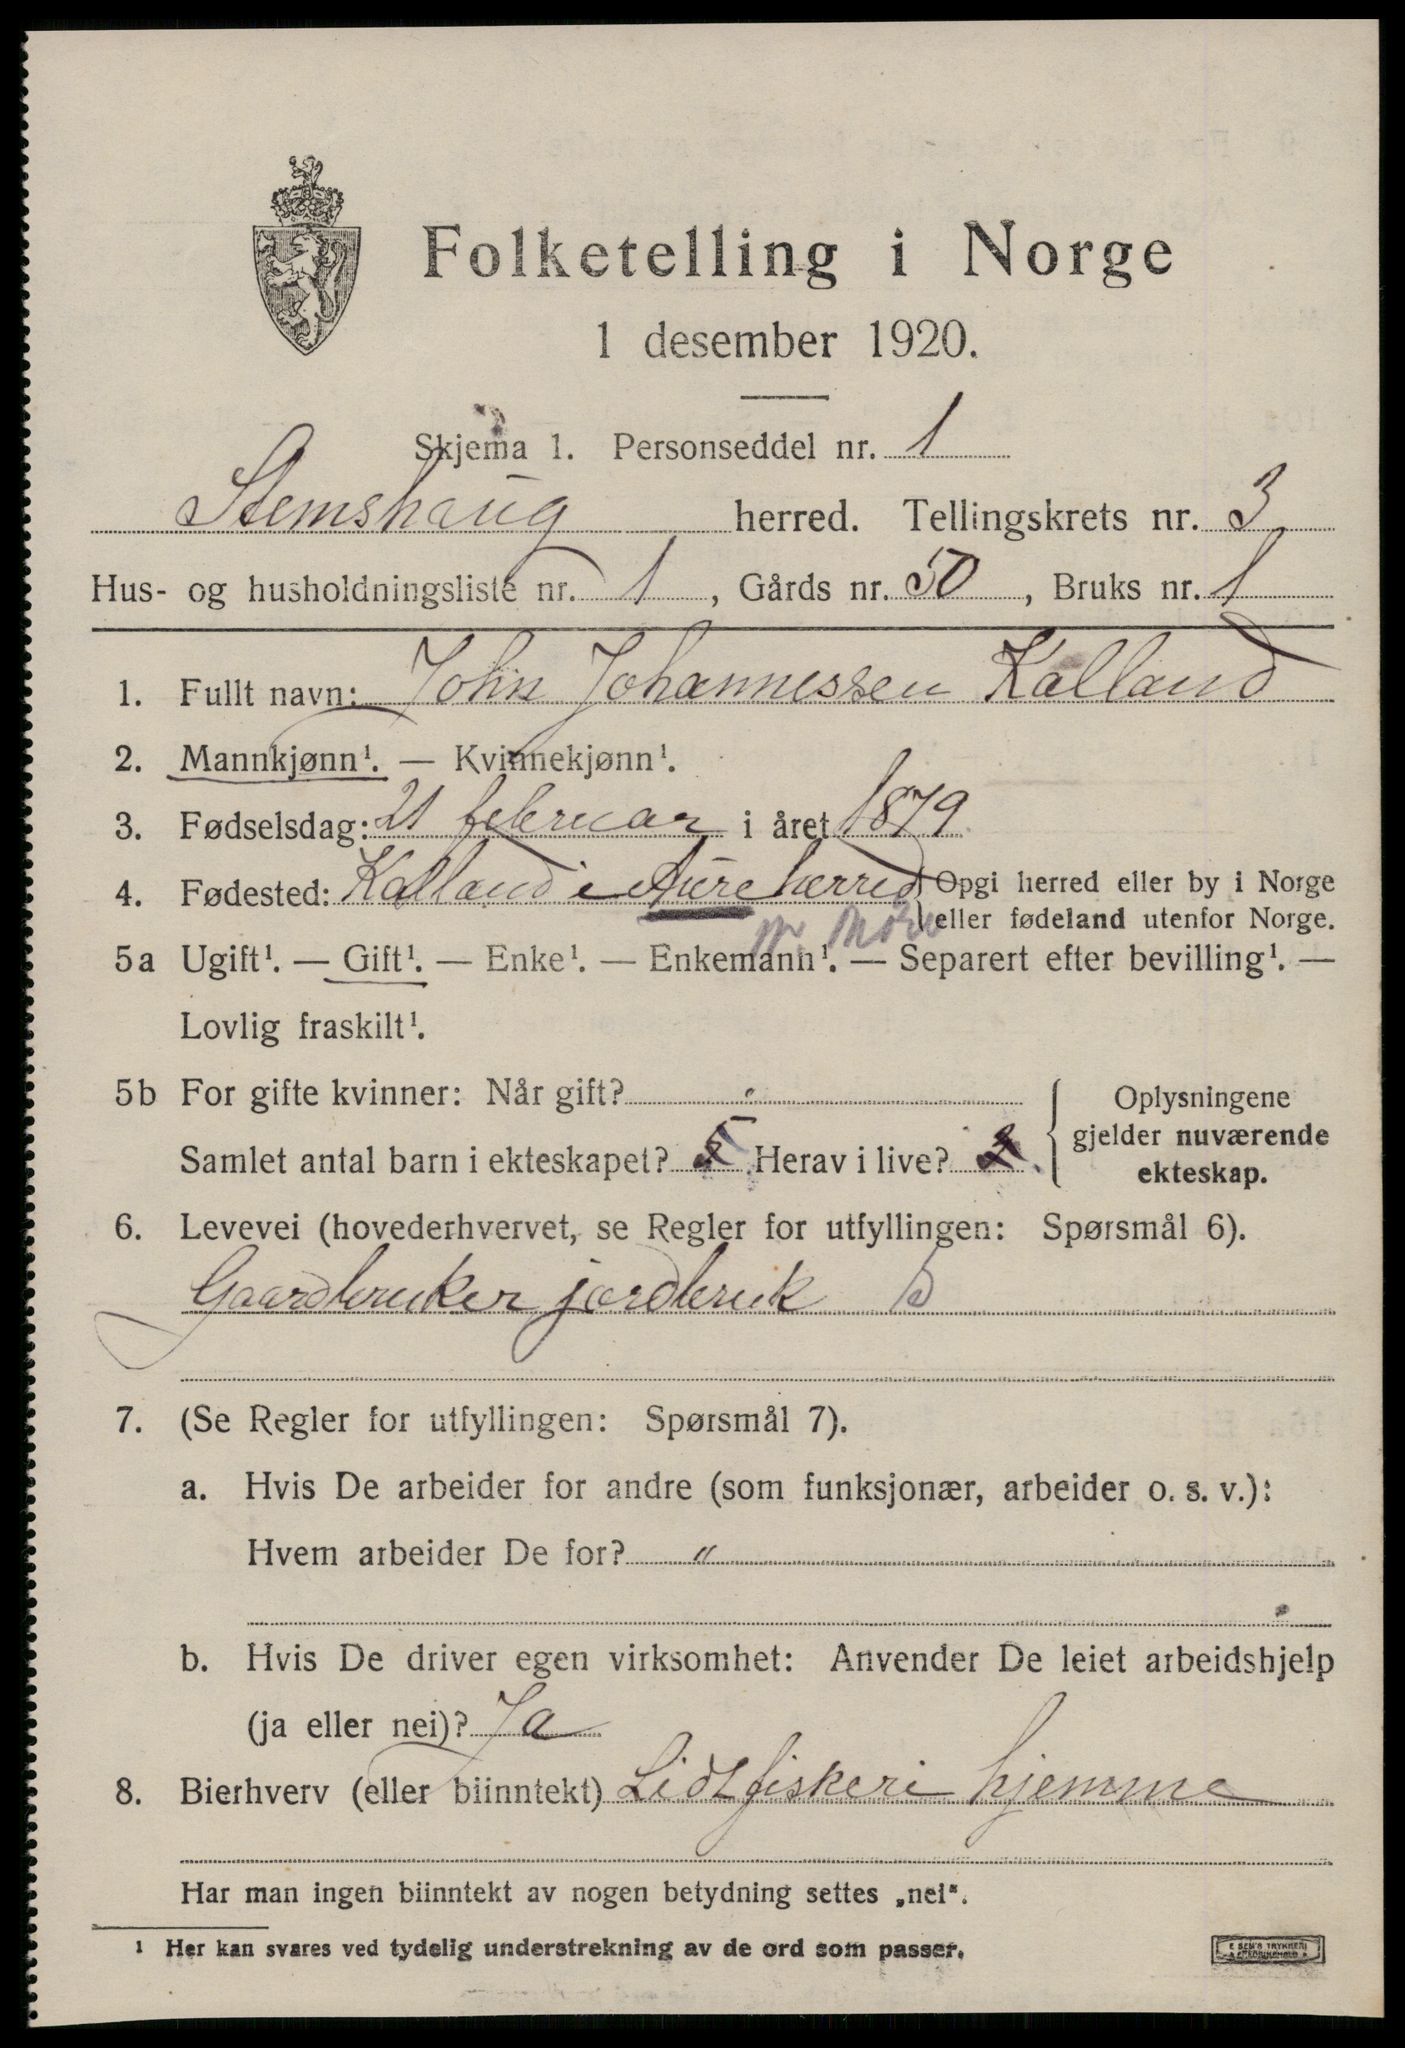 Folketelling i Norge
1 desember 1920.
Skjema 1. Personseddel nr. 1
Stemshaug herred. Tellingskrets nr. 3
Hus- og husholdningsliste nr. 1, Gårds nr. 50, Bruks nr. 1
1. Fullt navn: John Johannessen Kalland
2. Mannkjønn¹. — Kvinnekjønn¹.
3. Fødselsdag: 21 februar i året 1879.
4. Fødested: Kalland i Aure herred Opgi herred eller by i Norge
eller fødeland utenfor Norge.
pr. Møre
5a Ugift¹. — Gift¹. — Enke¹. — Enkemann¹. — Separert efter bevilling¹. —
Lovlig fraskilt¹.
5b For gifte kvinner: Når gift? "
Samlet antal barn i ekteskapet? Herav i live?
Oplysningene
gjelder nuværende
ekteskap.
6. Levevei (hovederhvervet, se Regler for utfyllingen: Spørsmål 6).
Gaardbruker jordbruk
7. (Se Regler for utfyllingen: Spørsmål 7).
a. Hvis De arbeider for andre (som funksjonær, arbeider o. s. v.):
Hvem arbeider De for? "
b. Hvis De driver egen virksomhet: Anvender De leiet arbeidshjelp
(ja eller nei)? Ja
8. Bierhverv (eller biinntekt) Lidt fiskeri hjemme
Har man ingen biinntekt av nogen betydning settes „nei“.
¹ Her kan svares ved tydelig understrekning av de ord som passer.